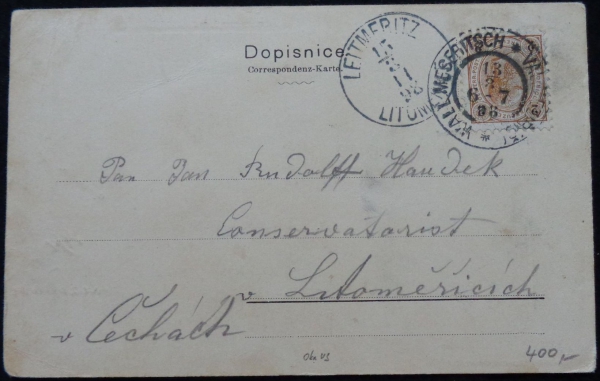 Dopisnice
Correspondenz-Karte
LEITMERITZ
LITOM
15
8
11
98
WALL. MESERITSCH
13
8
6-7
98
Pan Jan Rudolff Haudek
Conservatorist
v Litoměřicích
v Čechách
400,-